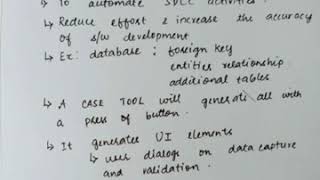 ↳ To automate SDLC activities.
↳ Reduce effort & increase the accuracy
of s/w development
↳ Ex: database : foreign key
entities relationship
additional tables
↳ A CASE TOOL will generate all with
a press of button.
↳ It generates UI elements
↳ user dialogs on data capture
and validation.